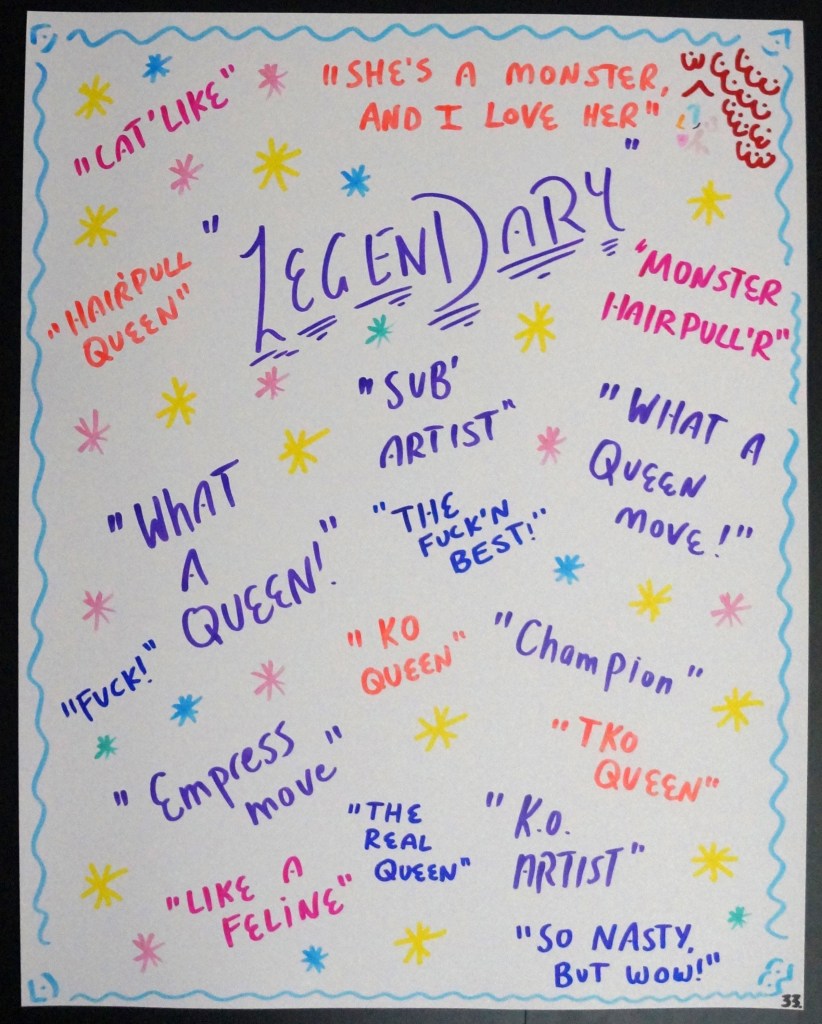 "CAT'LIKE"
"SHE'S A MONSTER,
AND I LOVE HER"
"LEGENDARY"
"HAIR'PULL
QUEEN"
"MONSTER
HAIRPULL'R"
"SUB'
ARTIST"
"WHAT A
QUEEN
MOVE!"
"WHAT
A
QUEEN!"
"THE
FUCK'N
BEST!"
"FUCK!"
"KO
QUEEN"
"Champion"
"Empress
move"
"TKO
QUEEN"
"THE
REAL
QUEEN"
"K.O.
ARTIST"
"LIKE A
FELINE"
"SO NASTY,
BUT WOW!"
33.